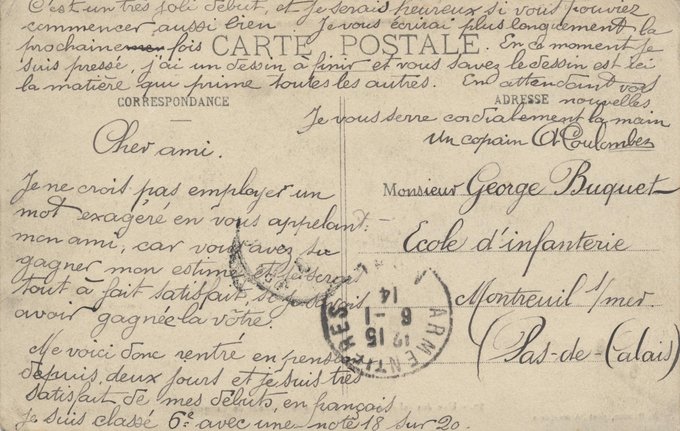 Cher ami.
Je ne crois pas employer un
mot exagéré en vous appelant:
mon ami, car vous avez su
gagner mon estime et je serais
tout à fait satisfait, si je
avoir gagnée la vôtre.
Me voici donc rentré en pension
depuis deux jours et je suis très
satisfait de mes débuts, en français
je suis classé 6e avec une note 18 sur 20.
C'est un très joli début, et je serais heureux si vous pouviez
commencer aussi bien Je vous écrirai plus longuement la
prochaine fois
CARTE POSTALE.
En ce moment je
suis pressé, j'ai un dessin à finir et vous savez le dessin est ici
la matière qui prime toutes les autres. En attendant vos
nouvelles.
Je vous serre cordialement la main
un copain A Coulombez
CORRESPONDANCE
ADRESSE
Monsieur George Buquet
Ecole d'infanterie
Montreuil s/mer.
(Pas-de-Calais)
ARMENTIERES
12 15
6-1
14